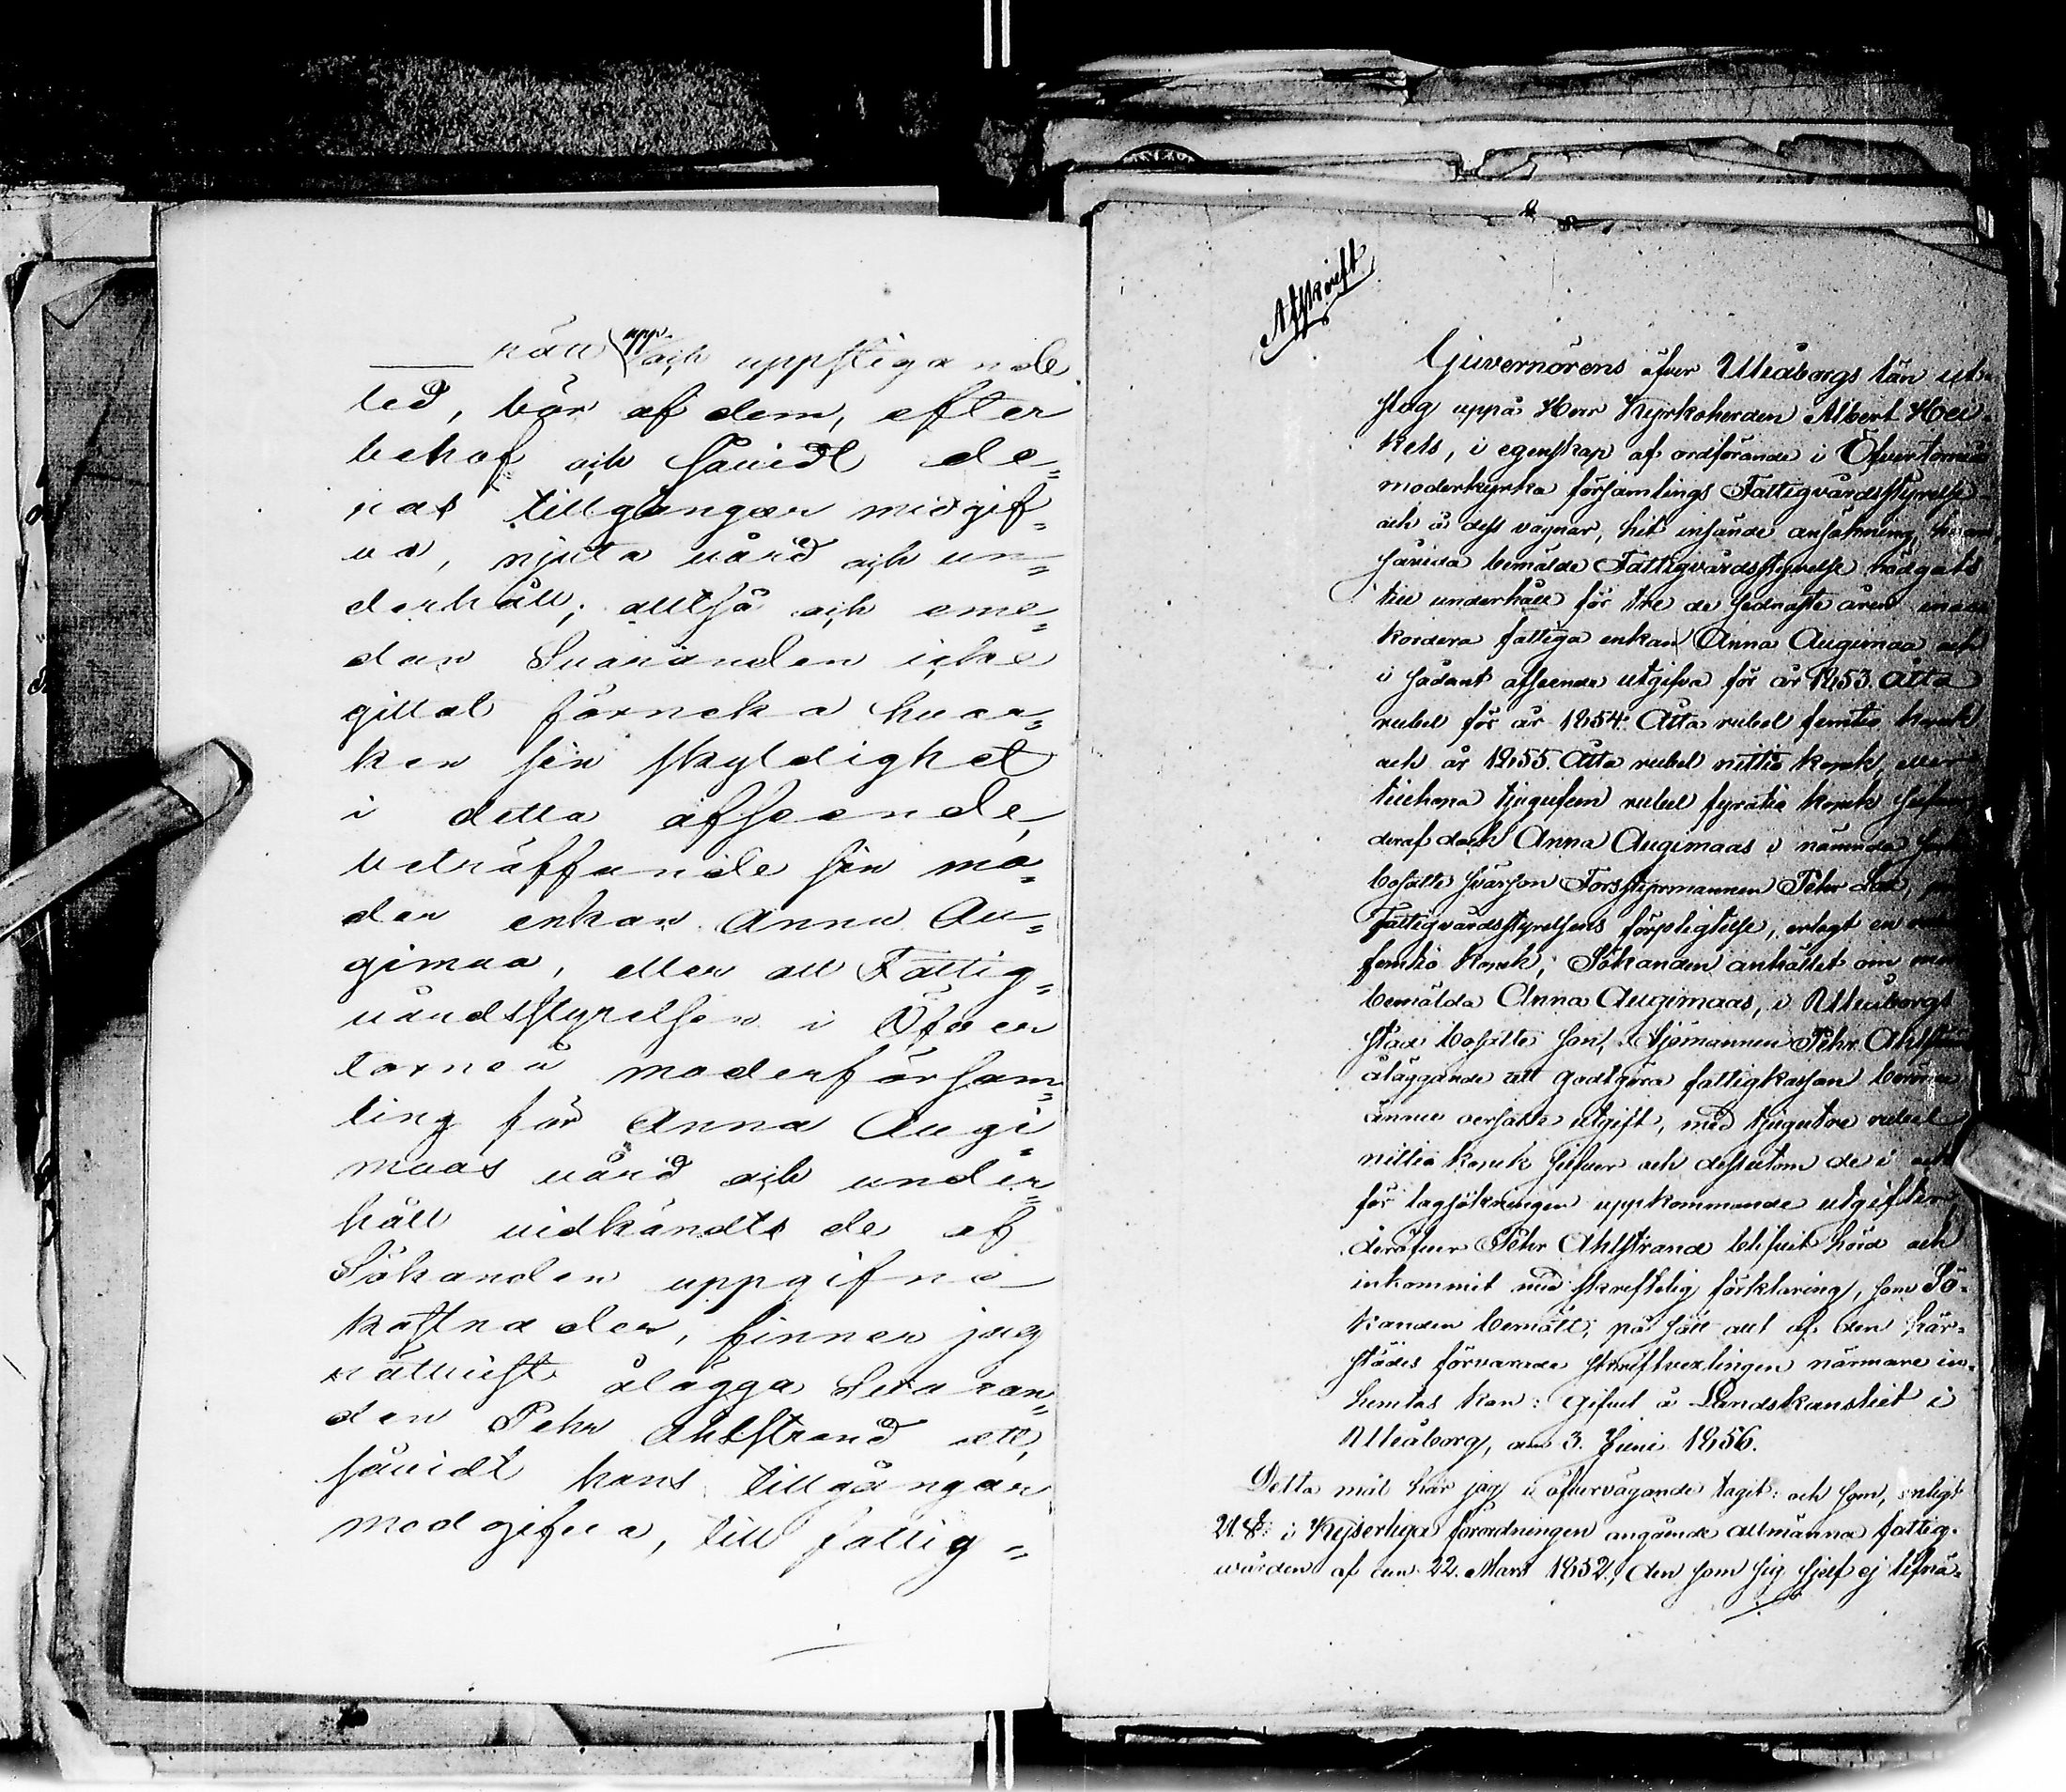 rätt upp- och uppstigande
led, bör af dem, efter
behof och såvidt de=
ras tillgångar medgif=
va, njuta vård och un=
derhåll; alltså och eme=
dan Svaranden icke
gittat förneka hvar=
ken sin skyldighet
i detta afseende,
beträffande sin mo=
der enkan Anna Au=
gimaa, eller att Fattig=
vårdsstyrelsen i Öfver
torneå moderförsam=
ling för Anna Augi=
maas vård och under=
håll vidkändts de af
Sökanden uppgifne
kostnader, finner jag
rättvist ålägga Svaran=
den Pehr Ahlstrand att,
såvidt hans tillgångar
medgifva, till fattig=
Afskrift
Guvernörens öfver Uleåborgs län ut-
slag uppå Herr Kyrkoherden Albert Hei-
kels, i egenskap af ordförande i Öfvertorneå
moderkyrko församlings Fattigvårdsstyrelse
och å dess vägnar, hit insände ansökning,
såvida bemälde Fattigvårdsstyrelse nödgats
till underhåll för tre de sednaste åren
kordera fattiga enkan Anna Augimaa och
i sådant afseende utgifva för år 1853. Åtta
rubel för år 1854. Åtta rubel femtio kopek
och år 1855. Åtta rubel nittio kopek, eller
tillhopa tjugufem rubel fyratio kopek silfver
deraf dock Anna Augimaas i nämnda
bosatte svärson Forsstyrmannen Pehr
Fattigvårdsstyrelsens förpligtelse, erlagt en
femtio kopek; Sökanden anhållit om
bemälda Anna Augimaas, i Uleåborgs
stad bosatte son, Sjömannen Pehr Ahlstrand
åläggande att godtgöra fattigkassan
ännu oersatte utgift, med tjugutre rubel
nittio kopek silfver och dessutom de i och
för lagsökningen uppkommande utgifter
deröfver Pehr Ahlstrand blifvit hörd och
inkommit med skriftelig förklaring, som Sö-
kanden bemött; på sätt allt af den här-
städes förvarade skriftvexlingen närmare in-
hemtas kan: gifvet å Landskansliet i
Uleåborg, den 3. Juni 1856.
Detta mål har jag i öfvervägande tagit: och som, enligt
21. §: i Kejserliga förordningen angående allmänna fattig-
vården af den 22. Mars 1852, den som sig sjelf ej lifnä-